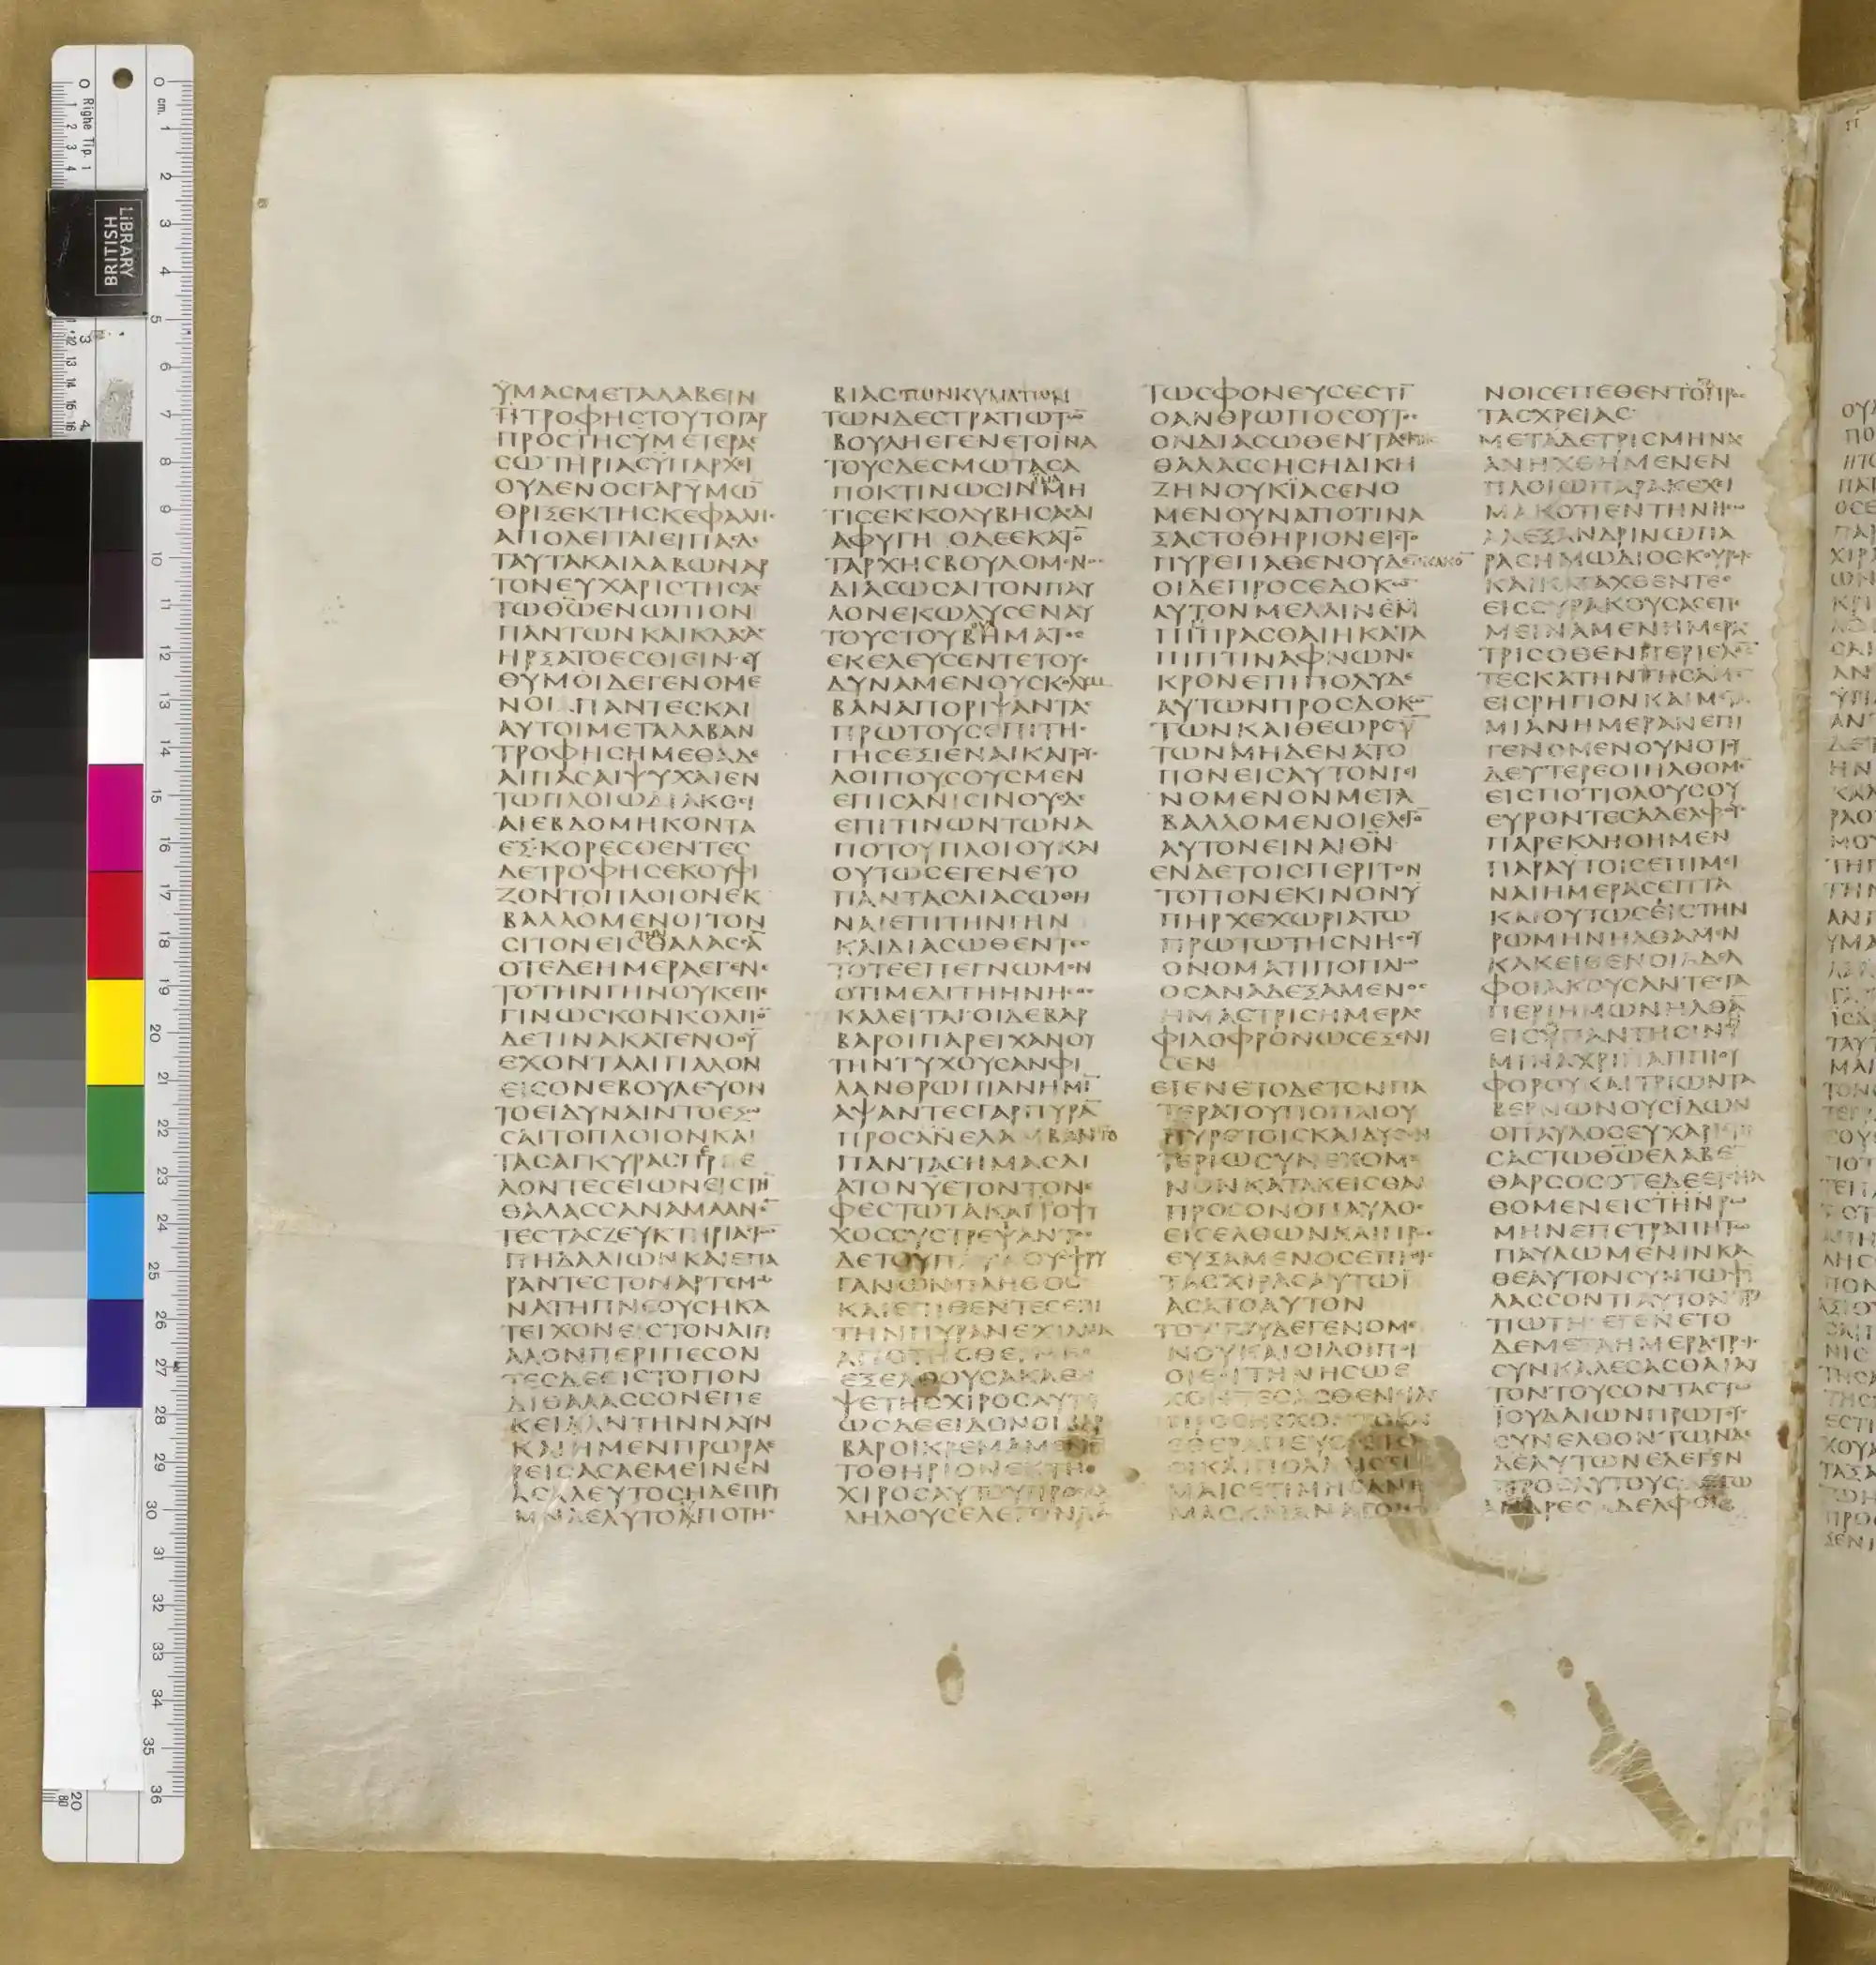 ΫΜΑCΜΕΤΑΛΑΒΕΙΝ
ΤΙΤΡΟΦΗCΤΟΥΤΟΓΑΡ
ΠΡΟCΤΗCΫΜΕΤΕΡΑC
CΩΤΗΡΙΑCΫΠΑΡΧΙ
ΟΥΔΕΝΟCΓΑΡΫΜΩ̅
ΘΡΙΞΕΚΤΗCΚΕΦΑΛΗC
ΑΠΟΛΕΙΤΑΙΕΙΠΑC
ΤΑΥΤΑΚΑΙΛΑΒΩΝΑΡ
ΤΟΝΕΥΧΑΡΙCΤΗCΑC
ΤΩΘ̅Ω̅ΕΝΩΠΙΟΝ
ΠΑΝΤΩΝΚΑΙΚΛΑCΑC
ΗΡΞΑΤΟΕCΘΙΕΙΝΕΥ
ΘΥΜΟΙΔΕΓΕΝΟΜΕ
ΝΟΙΠΑΝΤΕCΚΑΙ
ΑΥΤΟΙΜΕΤΑΛΑΒΑΝ
ΤΡΟΦΗCΗΜΕΘΑΔΕ
ΑΙΠΑCΑΙΨΥΧΑΙΕΝ
ΤΩΠΛΟΙΩΔΙΑΚΟCΙ
ΑΙΕΒΔΟΜΗΚΟΝΤΑ
ΕΞΚΟΡΕCΘΕΝΤΕC
ΔΕΤΡΟΦΗCΕΚΟΥΦΙ
ΖΟΝΤΟΠΛΟΙΟΝΕΚ
ΒΑΛΛΟΜΕΝΟΙΤΟΝ
CΙΤΟΝΕΙCΤΗΝΘΑΛΑCCΑ̅
ΟΤΕΔΕΗΜΕΡΑΕΓΕΝΕ
ΤΟΤΗΝΓΗΝΟΥΚΕΠΕ
ΓΙΝΩCΚΟΝΚΟΛΠΟ̅
ΔΕΤΙΝΑΚΑΤΕΝΟΟΥ̅
ΕΧΟΝΤΑΑΙΓΙΑΛΟΝ
ΕΙCΟΝΕΒΟΥΛΕΥΟΝ
ΤΟΕΙΔΥΝΑΙΝΤΟΕΞΩ
CΑΙΤΟΠΛΟΙΟΝΚΑΙ
ΤΑCΑΓΚΥΡΑCΠΕΡΙΕ
ΛΟΝΤΕCΕΙΩΝΕΙCΤΗ̅
ΘΑΛΑCCΑΝΑΜΑΑΝΕ̅
ΤΕCΤΑCΖΕΥΚΤΗΡΙΑCΤΩ̅
ΠΗΔΑΛΙΩΝΚΑΙΕΠΑ
ΡΑΝΤΕCΤΟΝΑΡΤΕΜΩ
ΝΑΤΗΠΝΕΟΥCΗΚΑ
ΤΕΙΧΟΝΕΙCΤΟΝΑΙΓΙ
ΑΛΟΝΠΕΡΙΠΕCΟΝ
ΤΕCΔΕΕΙCΤΟΠΟΝ
ΔΙΘΑΛΑCCΟΝΕΠΕ
ΚΕΙΛΑΝΤΗΝΝΑΥΝ
ΚΑΙΗΜΕΝΠΡΩΡΑΕ
ΡΕΙCΑCΑΕΜΕΙΝΕΝ
ΑCΑΛΕΥΤΟCΗΔΕΠΡΥ
ΜΝΑΕΛΥΤΟΑΠΟΤΗC
ΒΙΑCΤΩΝΚΥΜΑΤΩΝ
ΤΩΝΔΕCΤΡΑΤΙΩΤΩ̅
ΒΟΥΛΗΕΓΕΝΕΤΟΪΝΑ
ΤΟΥCΔΕCΜΩΤΑCΑ
ΠΟΚΤΙΝΩCΙΝΜΗ
ΤΙCΕΚΚΟΛΥΒΗCΑΔΙ
ΑΦΥΓΗΟΔΕΕΚΑΤΟ̅
ΤΑΡΧΗCΒΟΥΛΟΜΕΝΟC
ΔΙΑCΩCΑΙΤΟΝΠΑΥ
ΛΟΝΕΚΩΛΥCΕΝΑΥ
ΤΟΥCΤΟΥΒΗΜΑΤΟC
ΕΚΕΛΕΥCΕΝΤΕΤΟΥC
ΔΥΝΑΜΕΝΟΥCΚΟΛΥΜ
ΒΑΝΑΠΟΡΙΨΑΝΤΑC
ΠΡΩΤΟΥCΕΠΙΤΗC
ΓΗCΕΞΙΕΝΑΙΚΑΙΤΟΥC
ΛΟΙΠΟΥCΟΥCΜΕΝ
ΕΠΙCΑΝΙCΙΝΟΥCΔΕ
ΕΠΙΤΙΝΩΝΤΩΝΑ
ΠΟΤΟΥΠΛΟΙΟΥΚΑΙ
ΟΥΤΩCΕΓΕΝΕΤΟ
ΠΑΝΤΑCΔΙΑCΩΘΗ
ΝΑΙΕΠΙΤΗΝΓΗΝ
ΚΑΙΔΙΑCΩΘΕΝΤΕC
ΤΟΤΕΕΠΕΓΝΩΜΕΝ
ΟΤΙΜΕΛΙΤΗΗΝΗCΟC
ΚΑΛΕΙΤΑΙΟΙΔΕΒΑΡ
ΒΑΡΟΙΠΑΡΕΙΧΑΝΟΥ
ΤΗΝΤΥΧΟΥCΑΝΦΙ
ΛΑΝΘΡΩΠΙΑΝΗΜΙ̅
ΑΨΑΝΤΕCΓΑΡΠΥΡΑ̅
ΠΡΟCΑΝΕΛΑΜΒΑΝΤΟ
ΠΑΝΤΑCΗΜΑCΔΙ
ΑΤΟΝΫΕΤΟΝΤΟΝΕ
ΦΕCΤΩΤΑΚΑΙΤΟΨΥ
ΧΟCCΥCΤΡΕΨΑΝΤΟC
ΔΕΤΟΥΠΑΥΛΟΥΦΡΥ
ΓΑΝΩΝΠΛΗΘΟC
ΚΑΙΕΠΙΘΕΝΤΕCΕΠΙ
ΤΗΝΠΥΡΑΝΕΧΙΔΝΑ
ΑΠΟΤΗCΘΕΡΜΗC
ΕΞΕΛΘΟΥCΑΚΑΘΗ
ΨΕΤΗCΧΙΡΟCΑΥΤΟΥ
ΩCΔΕΕΙΔΟΝΟΙΒΑΡ
ΒΑΡΟΙΚΡΕΜΑΜΕΝΟ̅
ΤΟΘΗΡΙΟΝΕΚΤΗC
ΧΙΡΟCΑΥΤΟΥΠΡΟCΑ
ΛΗΛΟΥCΕΛΕΓΟΝΠΑ
ΤΩCΦΟΝΕΥCΕCΤΙ̅
ΟΑΝΘΡΩΠΟCΟΥΤΟC
ΟΝΔΙΑCΩΘΕΝΤΑΕΚΤΗC
ΘΑΛΑCCΗCΗΔΙΚΗ
ΖΗΝΟΥΚΪΑCΕΝΟ
ΜΕΝΟΥΝΑΠΟΤΙΝΑ
ΞΑCΤΟΘΗΡΙΟΝΕΙCΤΟ
ΠΥΡΕΠΑΘΕΝΟΥΔΕΝΚΑΚΟ̅
ΟΙΔΕΠΡΟCΕΔΟΚΩ̅
ΑΥΤΟΝΜΕΛΛΙΝΕΜ
ΠΙΠΡΑCΘΑΙΗΚΑΤΑ
ΠΙΠΤΙΝΑΦΝΩΝΕ
ΚΡΟΝΕΠΙΠΟΛΥΔΕ
ΑΥΤΩΝΠΡΟCΔΟΚΩ̅
ΤΩΝΚΑΙΘΕΩΡΟΥ̅
ΤΩΝΜΗΔΕΝΑΤΟ
ΠΟΝΕΙCΑΥΤΟΝΓΕΙ
ΝΟΜΕΝΟΝΜΕΤΑ
ΒΑΛΛΟΜΕΝΟΙΕΛΕΓΟ̅
ΑΥΤΟΝΕΙΝΑΙΘΝ̅
ΕΝΔΕΤΟΙCΠΕΡΙΤΟΝ
ΤΟΠΟΝΕΚΙΝΟΝΫ
ΠΗΡΧΕΧΩΡΙΑΤΩ
ΠΡΩΤΩΤΗCΝΗCΟΥ
ΟΝΟΜΑΤΙΠΟΠΛΙΩ
ΟCΑΝΑΔΕΞΑΜΕΝΟC
ΗΜΑCΤΡΙCΗΜΕΡΑC
ΦΙΛΟΦΡΟΝΩCΕΞΕΝΙ
CΕΝ
ΕΓΕΝΕΤΟΔΕΤΟΝΠΑ
ΤΕΡΑΤΟΥΠΟΠΛΙΟΥ
ΠΥΡΕΤΟΙCΚΑΙΔΥCΕΝ
ΤΕΡΙΩCΥΝΕΧΟΜΕ
ΝΟΝΚΑΤΑΚΕΙCΘΑΙ
ΠΡΟCΟΝΟΠΑΥΛΟC
ΕΙCΕΛΘΩΝΚΑΙΠΡΟC
ΕΥΞΑΜΕΝΟCΕΠΙΘΕΙC
ΤΑCΧΙΡΑCΑΥΤΩΪ
ΑCΑΤΟΑΥΤΟΝ
ΤΟΥΤΟΥΔΕΓΕΝΟΜΕ
ΝΟΥΚΑΙΟΙΛΟΙΠΟΙ
ΟΙΕΝΤΗΝΗCΩΕ
ΧΟΝΤΕCΑCΘΕΝΙΑC
ΠΡΟCΗΡΧΟΝΤΟΚΑΙ
ΕΘΕΡΑΠΕΥΟΝΤΟ
ΟΙΚΑΙΠΟΛΛΑΙCΤΙ
ΜΑΙCΕΤΙΜΗCΑΝΗ
ΜΑCΚΑΙΑΝΑΓΟΜΕ
ΝΟΙCΕΠΕΘΕΝΤΟΠΡΟC
ΤΑCΧΡΕΙΑC
ΜΕΤΑΔΕΤΡΙCΜΗΝΑC
ΑΝΗΧΘΗΜΕΝΕΝ
ΠΛΟΙΩΠΑΡΑΚΕΧΙ
ΜΑΚΟΤΙΕΝΤΗΝΗCΩ
ΑΛΕΞΑΝΔΡΙΝΩΠΑ
ΡΑCΗΜΩΔΙΟCΚΟΥΡΟΙC
ΚΑΙΚΑΤΑΧΘΕΝΤΕC
ΕΙCCΥΡΑΚΟΥCΑCΕΠΕ
ΜΕΙΝΑΜΕΝΗΜΕΡΑC
ΤΡΙCΟΘΕΝΠΕΡΙΕΛΟ̅
ΤΕCΚΑΤΗΝΤΗCΑΜΕ̅
ΕΙCΡΗΓΙΟΝΚΑΙΜΕΤΑ
ΜΙΑΝΗΜΕΡΑΝΕΠΙ
ΓΕΝΟΜΕΝΟΥΝΟΤΟΥ
ΔΕΥΤΕΡΕΟΙΗΛΘΟΜΕ̅
ΕΙCΠΟΤΙΟΛΟΥCΟΥ
ΕΥΡΟΝΤΕCΑΔΕΛΦΟΥC
ΠΑΡΕΚΛΗΘΗΜΕΝ
ΠΑΡΑΥΤΟΙCΕΠΙΜΕΙ
ΝΑΙΗΜΕΡΑCΕΠΤΑ
ΚΑΙΟΥΤΩCΕΙCΤΗΝ
ΡΩΜΗΝΗΛΘΑΜΕΝ
ΚΑΚΕΙΘΕΝΟΙΑΔΕΛ
ΦΟΙΑΚΟΥCΑΝΤΕCΤΑ
ΠΕΡΙΗΜΩΝΗΛΘΑ̅
ΕΙCΫΠΑΝΤΗCΙΝΗ
ΜΙΝΑΧΡΙΑΠΠΙΟΥ
ΦΟΡΟΥΚΑΙΤΡΙΩΝΤΑ
ΒΕΡΝΩΝΟΥCΪΔΩΝ
ΟΠΑΥΛΟCΕΥΧΑΡΙCΤΗ
CΑCΤΩΘ̅Ω̅ΕΛΑΒΕ
ΘΑΡCΟCΟΤΕΔΕΕΙCΗΛ
ΘΟΜΕΝΕΙCΤΗΝΡΩ
ΜΗΝΕΠΕΤΡΑΠΗΤΩ
ΠΑΥΛΩΜΕΝΙΝΚΑ
ΘΕΑΥΤΟΝCΥΝΤΩΦΥ
ΛΑCCΟΝΤΙΑΥΤΟΝCΤΡΑ
ΤΙΩΤΗΕΓΕΝΕΤΟ
ΔΕΜΕΤΑΗΜΕΡΑCΤΡΙC
CΥΝΚΑΛΕCΑCΘΑΙΑΥ
ΤΟΝΤΟΥCΟΝΤΑCΤΩ̅
ΪΟΥΔΑΙΩΝΠΡΩΤΟΥC
CΥΝΕΛΘΟΝΤΩΝΔΕ
ΑΥΤΩΝΕΛΕΓΕΝ
ΠΡΟCΑΥΤΟΥCΕΓΩ
ΑΝΔΡΕCΑΔΕΛΦΟΙ